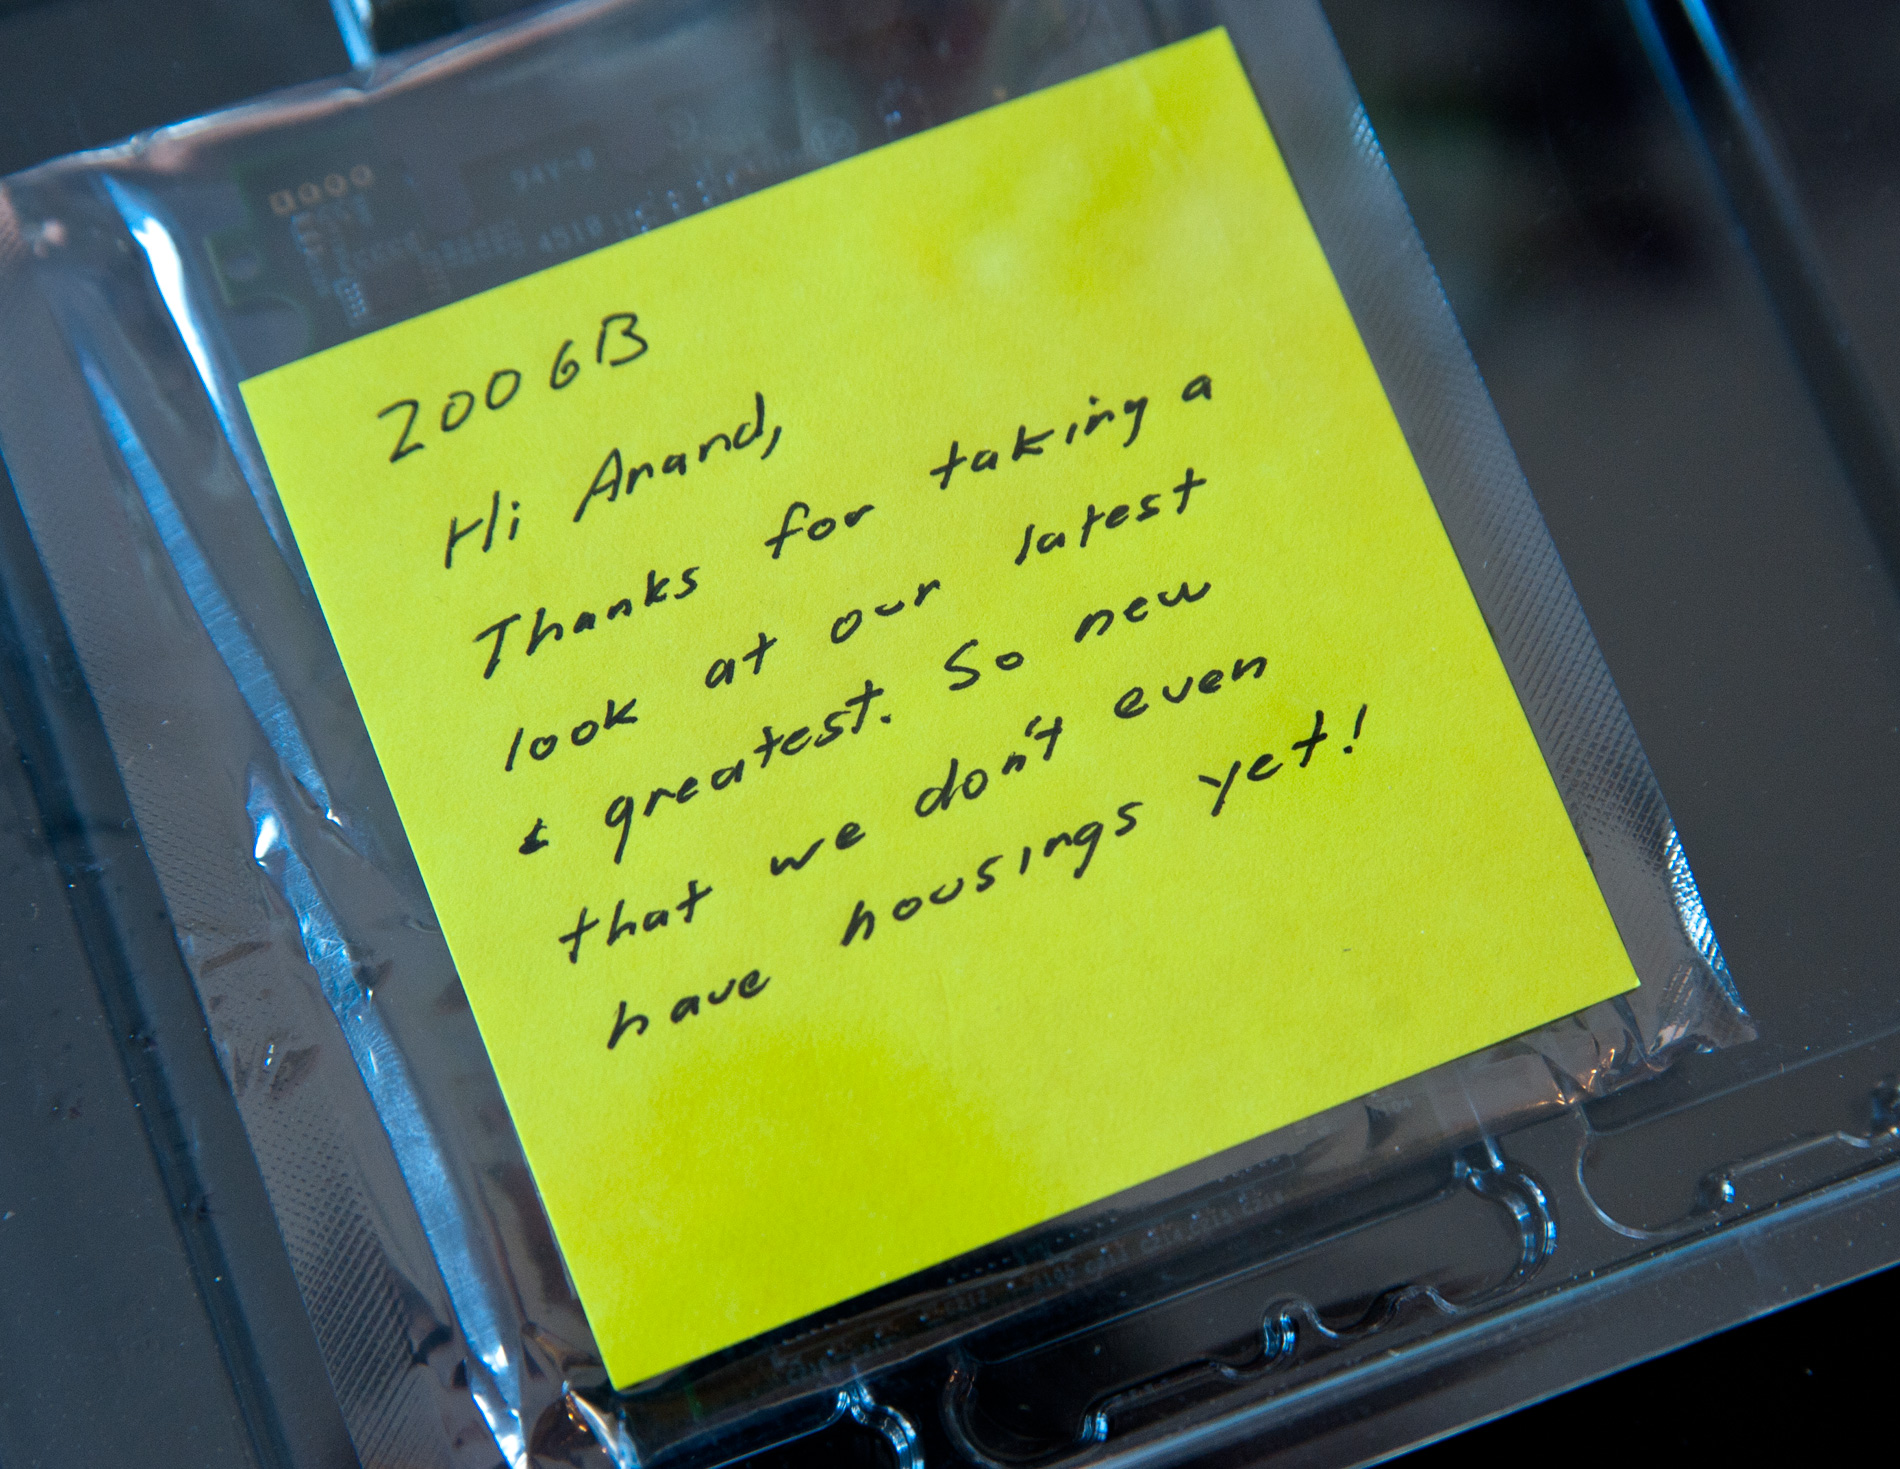 94V-0
200GB
Hi Anand,
Thanks for taking a
look at our latest
& greatest. So new
that we don't even
have housings yet!